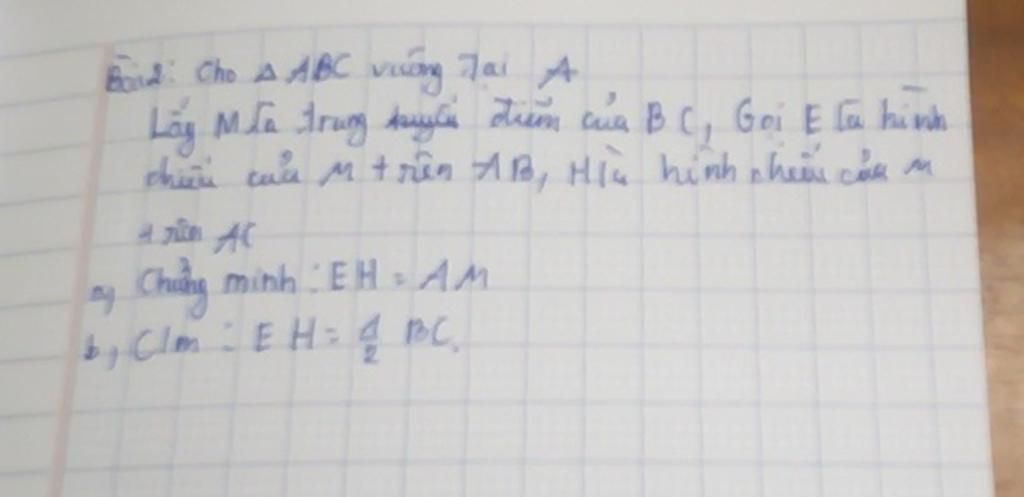 Bài 2: Cho △ ABC vuông Tại A
Lấy M là trung điểm của BC, Gọi E là hình
chiếu của M trên AB, H là hình chiếu của M
trên AC
a, Chứng minh: EH = AM
b, C/m: EH = 1/2 BC.